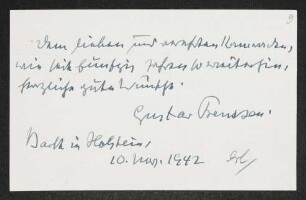 Dem lieben und verehrten Kameraden,
wie seit fünfzig Jahren so weiterhin,
herzliche gute Wünsche.
Gustav Frenssen.
Barlt in Holstein,
10. Nov. 1942